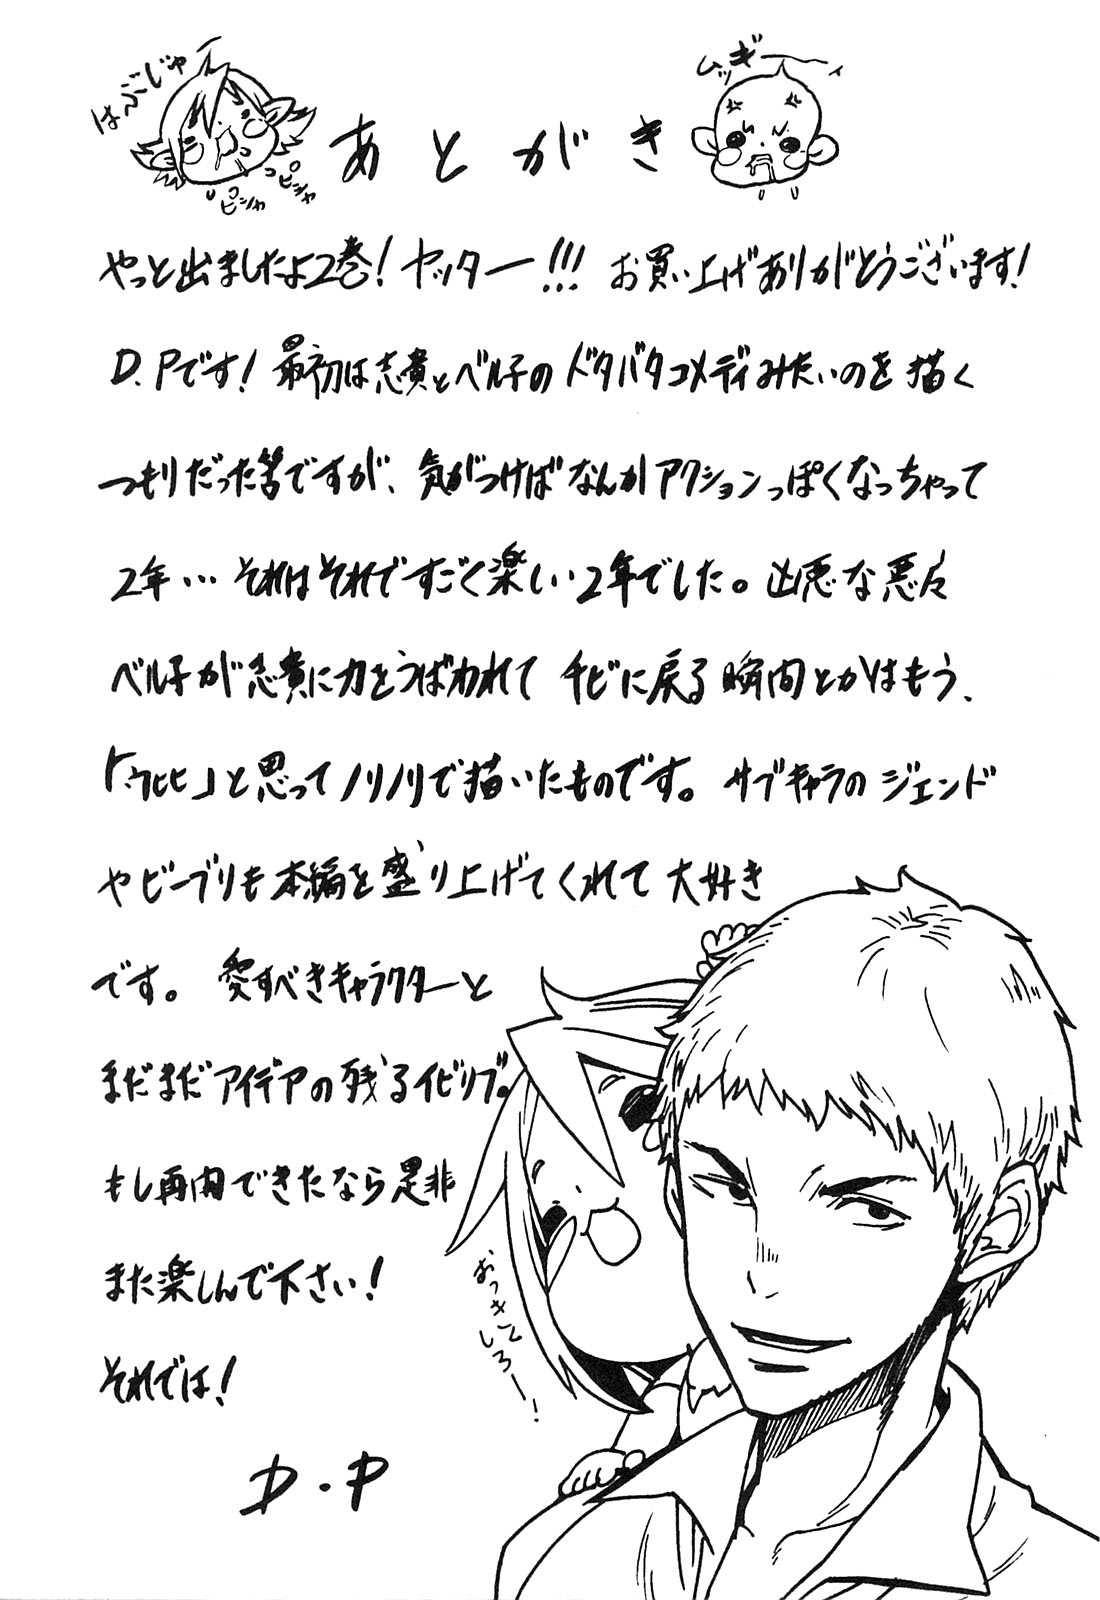 はぶじゅー
ムッギーー
あとがき
ピシャ
ピシャ
やっと出ましたよ2巻！ヤッター!!! お買い上げありがとうございます！
D.Pです！最初は志貴とベル子のドタバタコメディみたいのを描く
つもりだった筈ですが、気がつけばなんかアクションっぽくなっちゃって
2年…それはそれですごく楽しい2年でした。凶悪な悪々
ベル子が志貴に力をうばわれてチビに戻る瞬間とかはもう、
「ウヒヒ」と思ってノリノリで描いたものです。サブキャラのジェンド
やビーブリも本編を盛り上げてくれて大好き
です。愛すべきキャラクターと
まだまだアイデアの残るイビリブ。
もし再開できたなら是非
また楽しんで下さい！
それでは！
おっきくしろー！
D.P